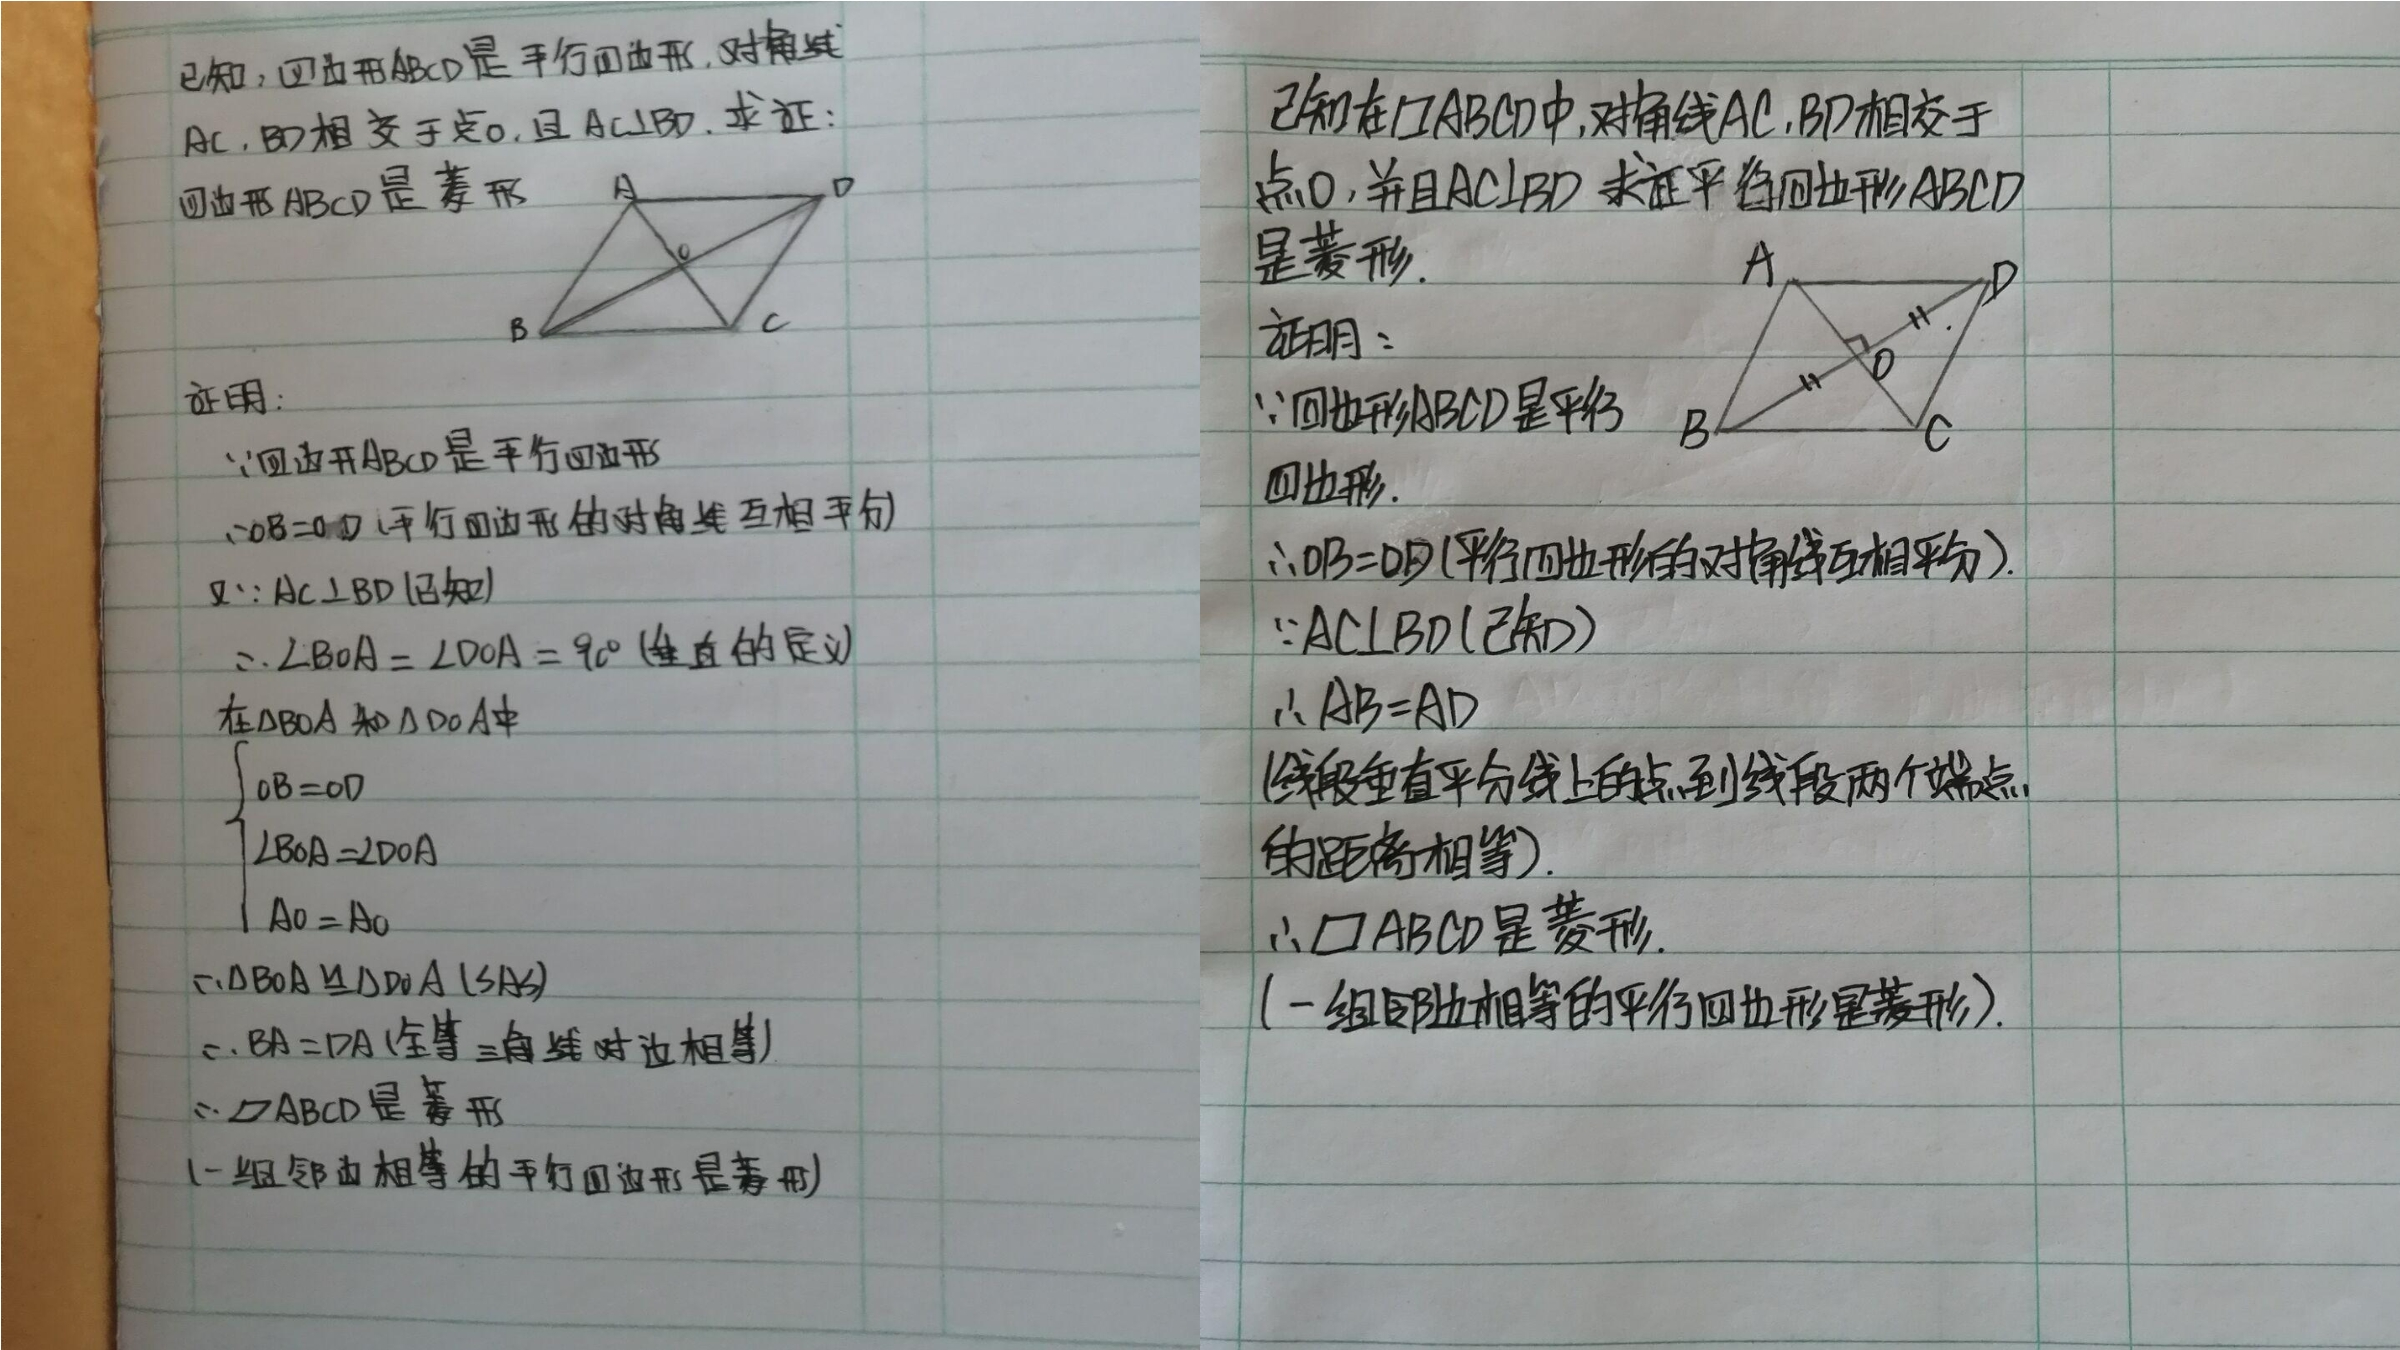 已知,四边形ABCD是平行四边形,对角线
AC,BD相交于点O,且AC⊥BD.求证:
四边形ABCD是菱形
A
D
O
B
C
证明:
∵四边开ABCD是平行四边形
∴OB=OD(平行四边形的对角线互相平分)
又∵AC⊥BD(已知)
∴∠BOA=∠DOA=90°(垂直的定义)
在△BOA和△DOA中
OB=OD
∠BOA=∠DOA
AO=AO
∴△BOA≌△DOA(SAS)
∴BA=DA(全等三角线对边相等)
∴▱ABCD是菱形
(一组邻边相等的平行四边形是菱形)
已知在▱ABCD中,对角线AC,BD相交于
点O,并且AC⊥BD 求证平行四边形ABCD
是菱形.
A
D
O
B
C
证明:
∵四边形ABCD是平行
四边形.
∴OB=OD(平行四边形的对角线互相平分).
∵AC⊥BD(已知)
∴AB=AD
(线段垂直平分线上的点到线段两个端点
的距离相等).
∴▱ABCD是菱形.
(一组邻边相等的平行四边形是菱形).